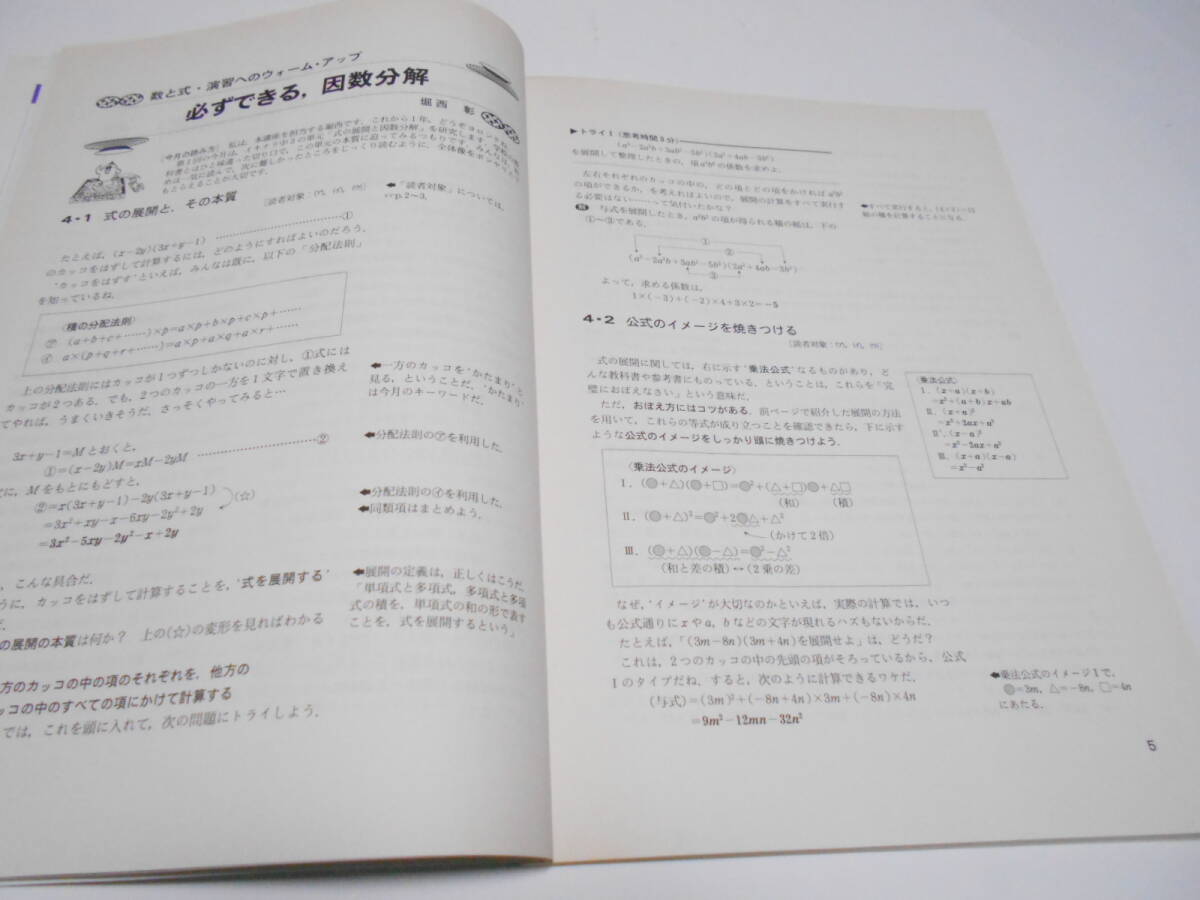 数と式・演習へのウォーム・アップ
必ずできる，因数分解
堀西 彰
〔今月の読み方〕 私は，本講座を担当する堀西です．これから1年，どうぞヨロシクね．
4・1 式の展開と，その本質
〔読者対象：
←「読者対象」については，
⇨p.2〜3.
たとえば，(x−2y)(3x+y−1) ……①
のカッコをはずして計算するには，どのようにすればよいのだろう．
‘カッコをはずす’といえば，みんなは既に，以下の「分配法則」
を知っているね．
〈積の分配法則〉
㋐ (a+b+c+……)×p=a×p+b×p+c×p+……
㋑ a×(p+q+r+……)=a×p+a×q+a×r+……
上の分配法則にはカッコが1つずつしかないのに対し，①式には
カッコが2つある．でも，2つのカッコの一方を1文字で置き換え
てやれば，うまくいきそうだ．さっそくやってみると…
←一方のカッコを‘かたまり’と
見る，ということだ．‘かたまり’
は今月のキーワードだ．
3x+y−1=Mとおくと，
①=(x−2y)M=xM−2yM ……②
←分配法則の㋐を利用した．
に，Mをもとにもどすと，
②=x(3x+y−1)−2y(3x+y−1)
=3x²+xy−x−6xy−2y²+2y
=3x²−5xy−2y²−x+2y
(☆)
←分配法則の㋑を利用した．
←同類項はまとめよう．
，こんな具合だ．
うに，カッコをはずして計算することを，‘式を展開する’
だ．
の展開の本質は何か？ 上の(☆)の変形を見ればわかる
←展開の定義は，正しくはこうだ．
「単項式と多項式，多項式と多項
式の積を，単項式の和の形で表す
ことを，式を展開するという」
方のカッコの中の項のそれぞれを，他方の
ッコの中のすべての項にかけて計算する
では，これを頭に入れて，次の問題にトライしよう．
▶トライ1（思考時間3分）
(a³−2a²b+3ab²−5b³)(2a²+4ab−3b²)
を展開して整理したときの，項a³b²の係数を求めよ．
左右それぞれのカッコの中の，どの項とどの項をかければa³b²
の項ができるか，を考えればよいので，展開の計算をすべて実行す
る必要はない……って気付いたかな？
←すべて実行すると，(4×3=)12
個の積を計算することになる．
与式を展開したとき，a³b²の項が得られる積の組は，下の
①〜③である．
①
②
(a³−2a²b+3ab²−5b³)(2a²+4ab−3b²)
③
よって，求める係数は，
1×(−3)+(−2)×4+3×2=−5
4・2 公式のイメージを焼きつける
〔読者対象：
式の展開に関しては，右に示す‘乗法公式’なるものがあり，ど
んな教科書や参考書にものっている．ということは，これらを「完
璧におぼえなさい」という意味だ．
ただ，おぼえ方にはコツがある．前ページで紹介した展開の方法
を用いて，これらの等式が成り立つことを確認できたら，下に示す
ような公式のイメージをしっかり頭に焼きつけよう．
〈乗法公式〉
Ⅰ．(x+a)(x+b)
=x²+(a+b)x+ab
Ⅱ．(x+a)²
=x²+2ax+a²
Ⅱ'．(x−a)²
=x²−2ax+a²
Ⅲ．(x+a)(x−a)
=x²−a²
〈乗法公式のイメージ〉
Ⅰ．(◯+△)(◯+□)=◯²+(△+□)◯+△□
(和) (積)
Ⅱ．(◯+△)²=◯²+2◯△+△²
(かけて2倍)
Ⅲ．(◯+△)(◯−△)=◯²−△²
(和と差の積)↔(2乗の差)
なぜ，‘イメージ’が大切なのかといえば，実際の計算では，いつ
も公式通りにxやa，bなどの文字が現れるハズもないからだ．
たとえば，「(3m−8n)(3m+4n)を展開せよ」は，どうだ？
これは，2つのカッコの中の先頭の項がそろっているから，公式
Ⅰのタイプだね．すると，次のように計算できるワケだ．
(与式)=(3m)²+(−8n+4n)×3m+(−8n)×4n
=9m²−12mn−32n²
←乗法公式のイメージⅠで，
◯=3m，△=−8n，□=4n
にあたる．
5